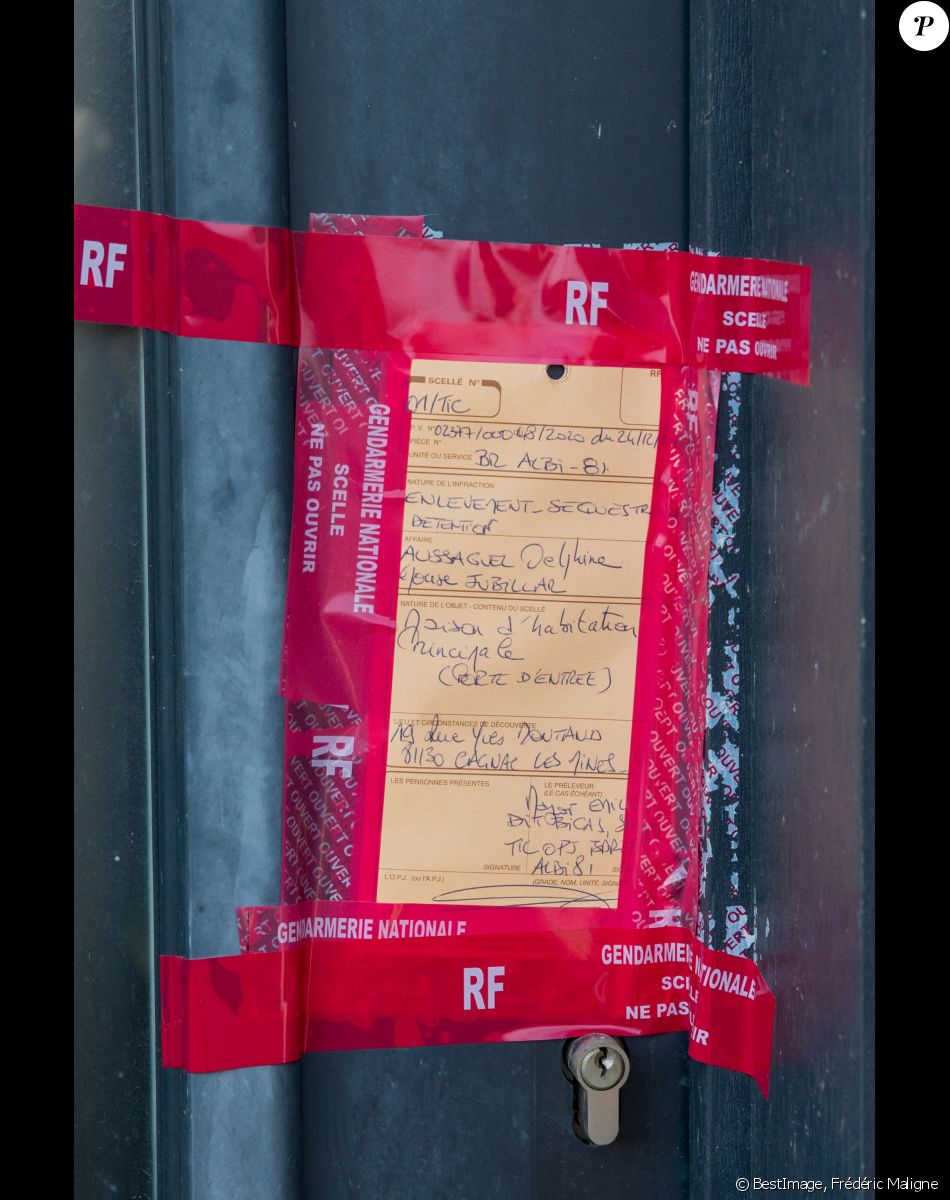 P
RF
RF
GENDARMERIE NATIONALE
SCELLE
NE PAS OUVRIR
SCELLÉ N°
01/TIC
RF
P.V. N° 02377/00048/2020 du 24/12/
PIÈCE N°
UNITÉ OU SERVICE BR ALBI - 81
NATURE DE L'INFRACTION
ENLEVEMENT - SEQUESTR
DETENTION
AFFAIRE
AUSSAGUEL Delphine
épouse JUBILLAR
NATURE DE L'OBJET - CONTENU DU SCELLÉ
Maison d'habitation
Principale
(PORTE D'ENTREE)
LIEU ET CIRCONSTANCES DE DÉCOUVERTE
19 Rue Yves MONTAND
81130 CAGNAC LES MINES
LES PERSONNES PRÉSENTES
LE PRÉLEVEUR
(LE CAS ÉCHÉANT)
TIC OPJ
ALBI 81
SIGNATURE
L'O.P.J. (ou l'A.P.J.)
(GRADE, NOM, UNITÉ, SIGN
GENDARMERIE NATIONALE
SCELLE
NE PAS OUVRIR
RF
RF
OUVERT OUVERT OUVERT
GENDARMERIE NATIONALE
RF
GENDARMERIE NATIONALE
SCELLE
NE PAS OUVRIR
© BestImage, Frédéric Maligne